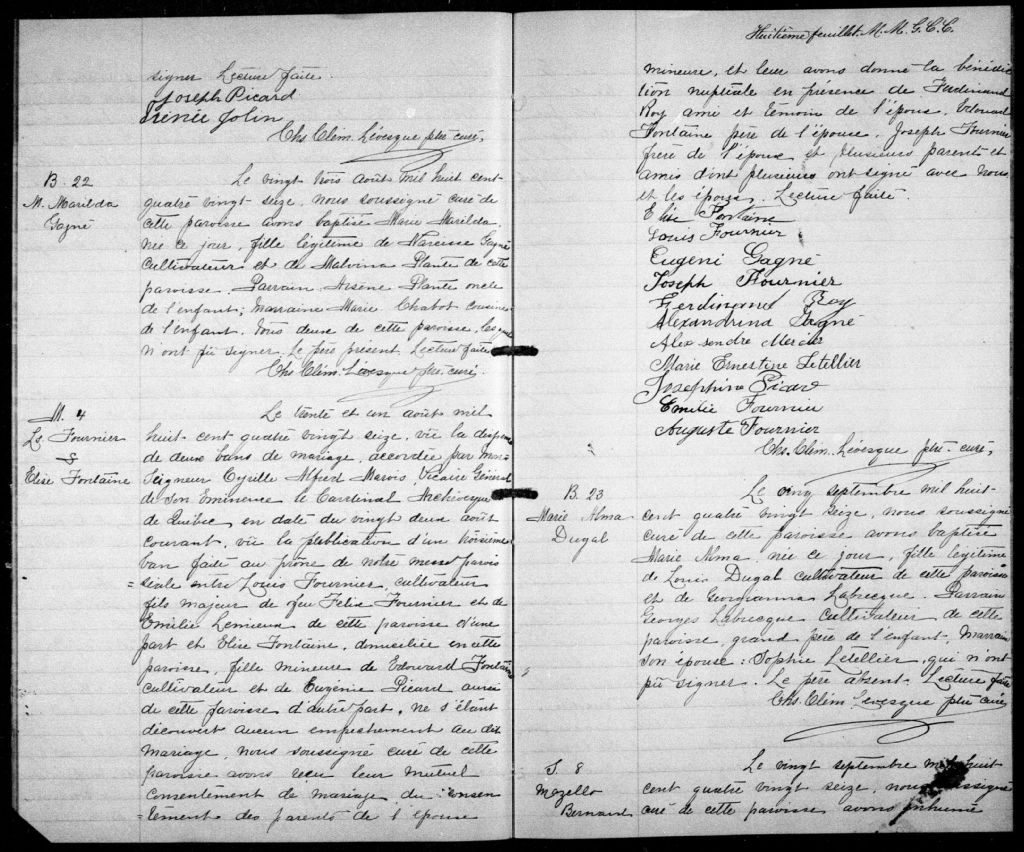 signer Lecture faite.
Joseph Picard
Irénée Jolin
Chs. Clém. Lévesque ptre curé.
B. 22
M. Marilda
Gagné
Le vingt trois août mil huit cent
quatre vingt seize, nous soussigné curé de
cette paroisse avons baptisé Marie Marilda
née ce jour, fille légitime de Narcisse Gagné
cultivateur et de Malvina Plante de cette
paroisse. Parrain Arsène Plante oncle
de l'enfant; marraine Marie Chabot cousine
de l'enfant. Tous deux de cette paroisse, lesquels
n'ont pu signer. Le père présent. Lecture faite
Chs. Clém. Lévesque ptre. curé.
M. 4
Ls. Fournier
&
Elise Fontaine
Le trente et un août mil
huit cent quatre vingt seize, vu la dispense
de deux bans de mariage, accordée par Mon-
Seigneur Cyrille Alfred Marois, Vicaire Général
de Son Eminence le Cardinal Archevêque
de Québec en date du vingt deux août
courant, vu la publication d'un troisième
ban faite au prône de notre messe parois
=siale entre Louis Fournier, cultivateur
fils majeur de feu Félix Fournier et de
Emilie Lemieux de cette paroisse d'une
part et Elise Fontaine, domiciliée en cette
paroisse, fille mineure de Edouard Fontaine
cultivateur et de Eugénie Picard aussi
de cette paroisse d'autre part, ne s'étant
découvert aucun empêchement au dit
mariage, nous soussigné curé de cette
paroisse avons reçu leur mutuel
consentement de mariage du consen
tement des parents de l'épouse
Huitième feuillet. M. M. G. C. C.
mineure, et leur avons donné la bénédic
tion nuptiale en présence de Ferdinand
Roy ami et témoin de l'époux, Edouard
Fontaine père de l'épouse, Joseph Fournier
frère de l'époux et plusieurs parents et
amis dont plusieurs ont signé avec nous
et les époux. Lecture faite.
Elise Fontaine
Louis Fournier
Eugéni Gagné
Joseph Fournier
Ferdinand Roy
Alexandrina Gagné
Alexendre Mercier
Marie Ernestine Letellier
Josephine Picard
Emilie Fournier
Auguste Fournier
Chs. Clém. Lévesque ptre curé.
B. 23
Marie Alma
Dugal
Le cinq septembre mil huit-
cent quatre vingt seize, nous soussigné
curé de cette paroisse avons baptisé
Marie Alma née ce jour, fille légitime
de Louis Dugal cultivateur de cette paroisse
et de Georgianna Labrecque. Parrain
Georges Labrecque cultivateur de cette
paroisse, grand père de l'enfant. Marraine
son épouse: Sophie Letellier qui n'ont
pu signer. Le père absent. Lecture faite
Chs. Clém. Lévesque ptre curé,
S. 8
Mazello
Bernard
Le vingt septembre mil huit
cent quatre vingt seize, nous soussigné
curé de cette paroisse avons inhumé